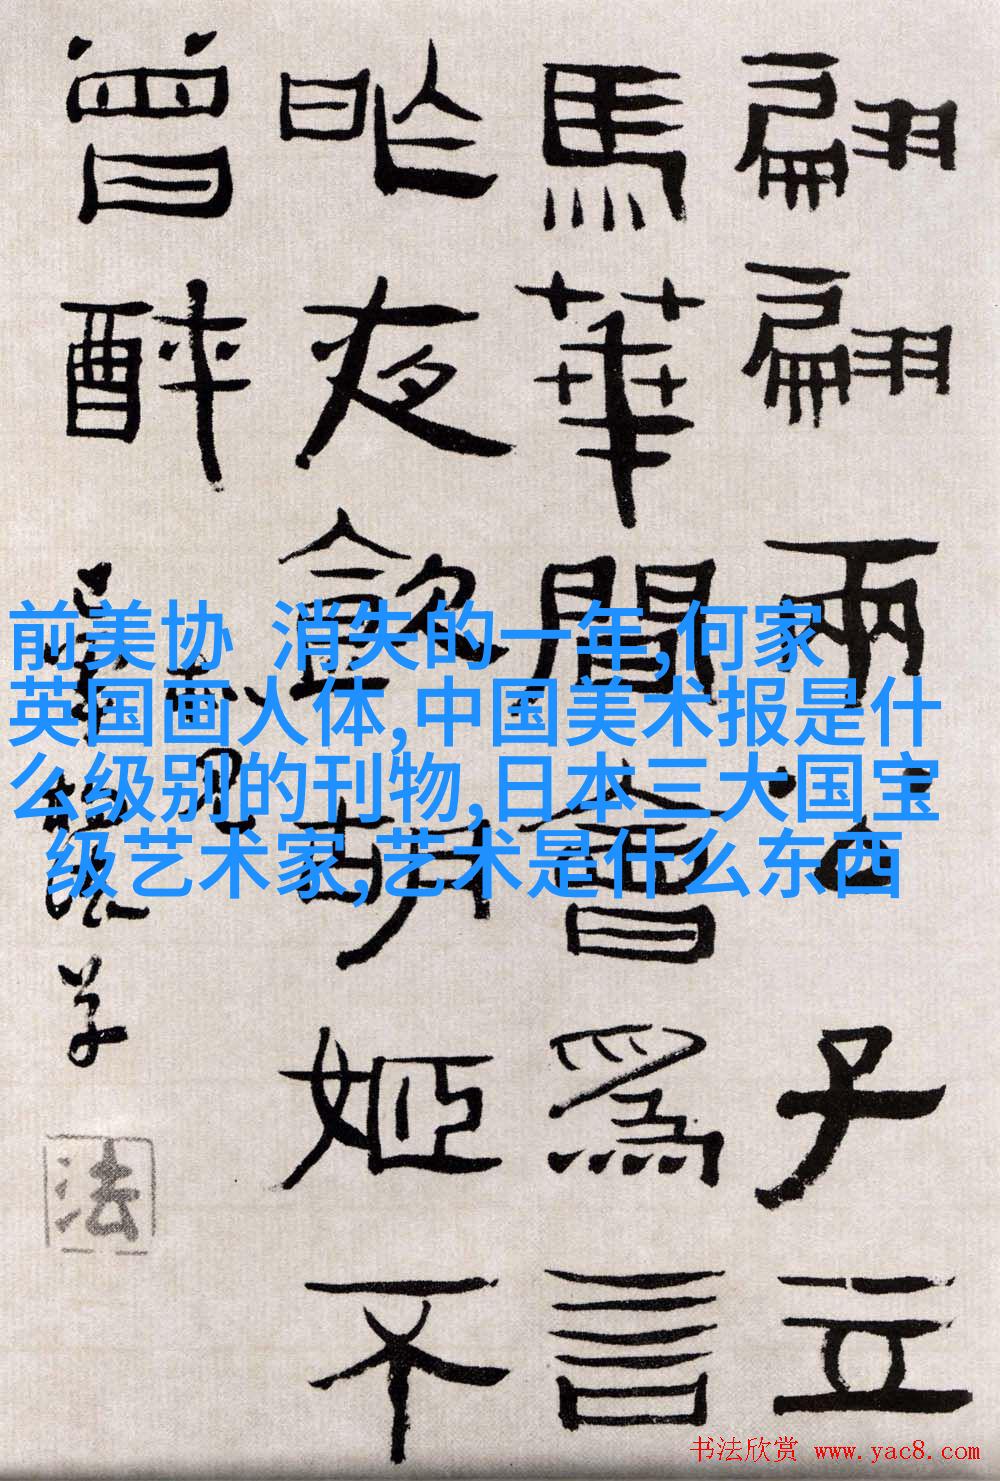 翩翩兩公子立
馬華間會爲言
昨夜飲胡姬不
曾醉
前美协 消失的一年,何家
英国画人体,中国美术报是什
么级别的刊物,日本三大国宝
级艺术家,艺术是什么东西
法
书法欣赏 www.yac8.com